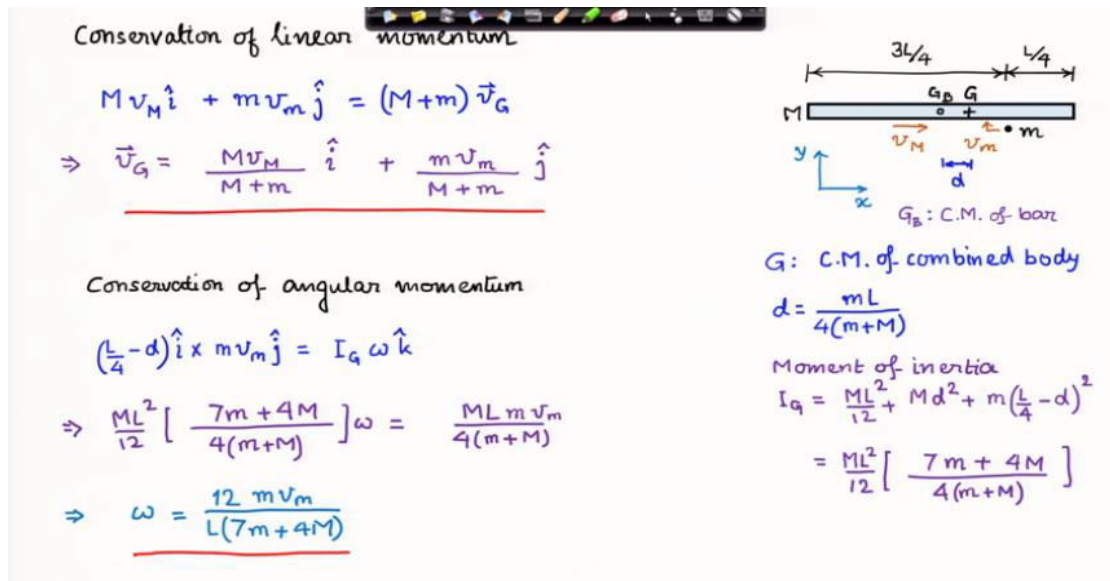 Conservation of linear momentum
M v_M î + m v_m ĵ = (M+m) v⃗_G
⇒ v⃗_G = \frac{M v_M}{M+m} î + \frac{m v_m}{M+m} ĵ
Conservation of angular momentum
(\frac{L}{4}-d) î × m v_m ĵ = I_G ω k̂
⇒ \frac{ML^2}{12} [ \frac{7m+4M}{4(m+M)} ] ω = \frac{ML m v_m}{4(m+M)}
⇒ ω = \frac{12 m v_m}{L(7m+4M)}
3L/4 L/4
G_B G
M
v_M v_m m
y
d
x
G_B : C.M. of bar
G: C.M. of combined body
d = \frac{mL}{4(m+M)}
Moment of inertia
I_G = \frac{ML^2}{12} + Md^2 + m(\frac{L}{4}-d)^2
= \frac{ML^2}{12} [ \frac{7m+4M}{4(m+M)} ]